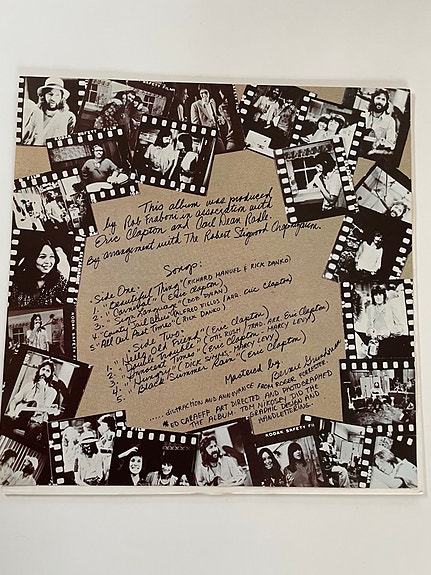 This album was produced
by Rob Fraboni in association with
Eric Clapton and Carl Dean Radle.
By arrangement with The Robert Stigwood Organisation.
Songs:
Side One:
1. "Beautiful Thing" (RICHARD MANUEL & RICK DANKO)
2. "Carnival" (Eric Clapton)
3. "Sign Language" (BOB DYLAN)
4. "County Jail Blues" (ALFRED FIELDS /ARR. Eric Clapton)
5. "All Our Past Times" (RICK DANKO)
Side Two:
1. "Hello Old Friend" (Eric Clapton)
2. "Double Trouble" (OTIS RUSH / TRAD. ARR. Eric Clapton)
3. "Innocent Times" (Eric Clapton - MARCY LEVY)
4. "Hungry" (DICK SIMS - MARCY LEVY)
5. "Black Summer Rain" (Eric Clapton)
Mastered by:
..... DISTRACTION AND ANNOYANCE FROM ROGER FORRESTER
ED CARAEFF ART DIRECTED AND PHOTOGRAPHED
THE ALBUM. TOM NIKOSEY DID THE
GRAPHIC DESIGN AND
HANDLETTERING.
KODAK SAFETY